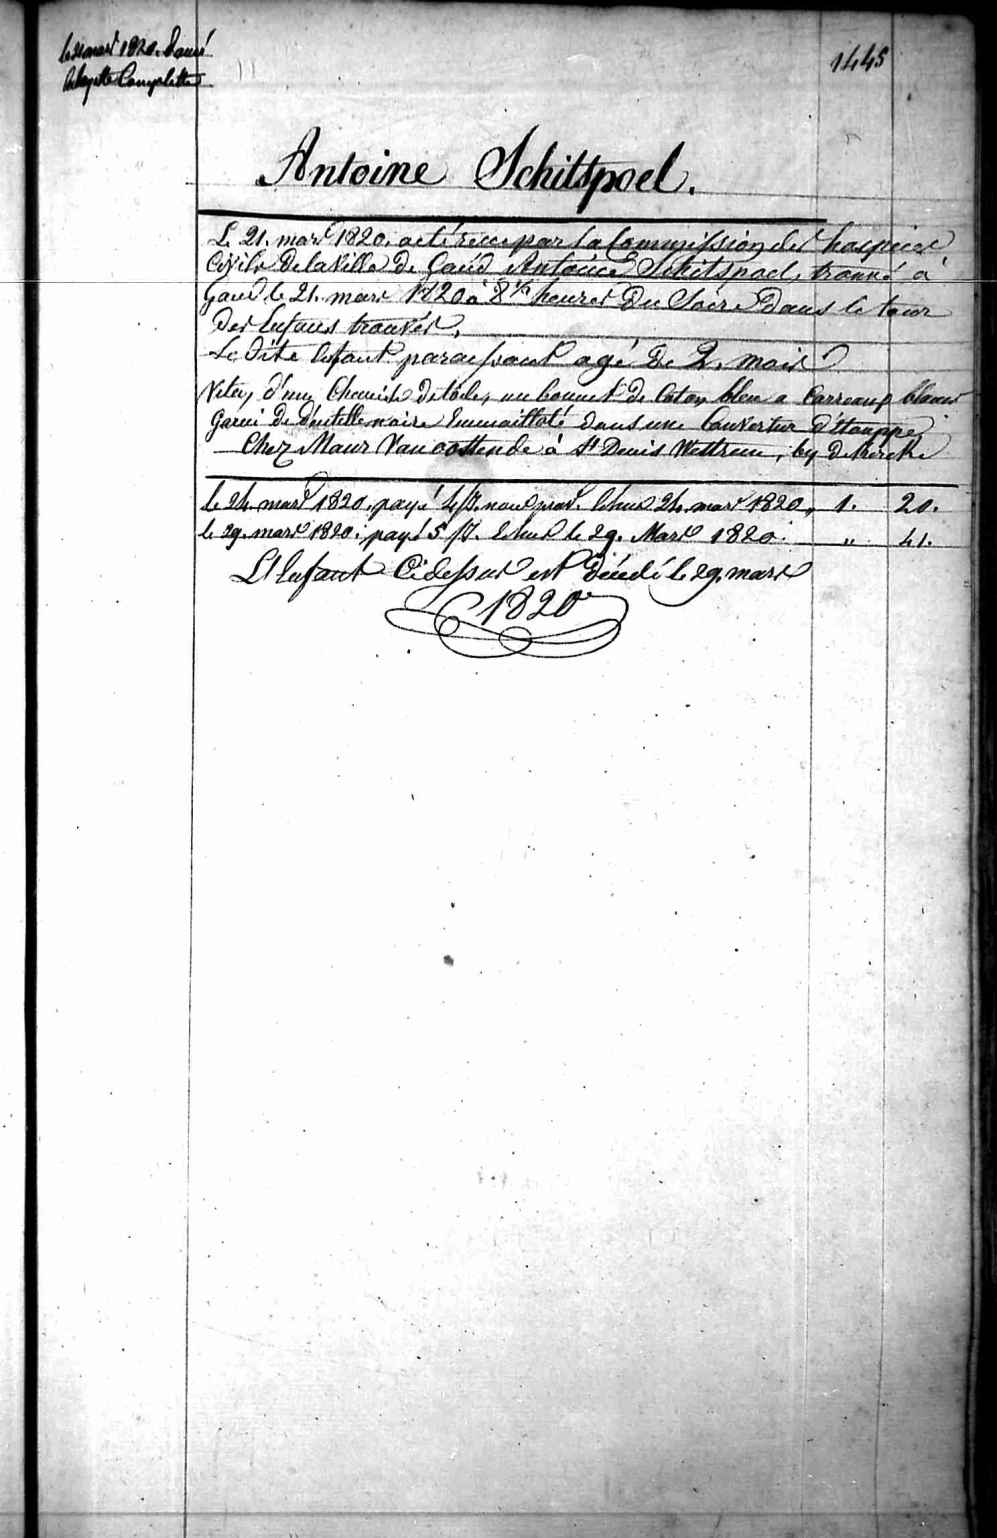 le 21 mars 1820. Donné
la layette Complette
1445
Antoine Schitspoel.
Le 21. mars 1820. a eté reçu par la Commission des hospices
Civils de la Ville de Gand Antoine Schitspoel, trouvé à
Gand le 21. mars 1820 à 8 ½ heures du Soire dans le tour
des Enfans trouvés,
Le dite Enfant paraissant agé de 2. mois
Vetu, d'une Chemise de toile, un bonnet de Coton bleu a Carreaux blancs
garni de dentelle noire Emmailloté dans une Couverture d'étouppe
Chez Maur Van oostende à St Denis Westrem, by de kercke
le 24. mars 1820. payé 24. mars 1820 „ 1. 20.
le 29. mars 1820. payé 5 Echus le 29. Mars 1820. „ 41.
L'Enfant Cidessus est Décédé le 29. mars
1820